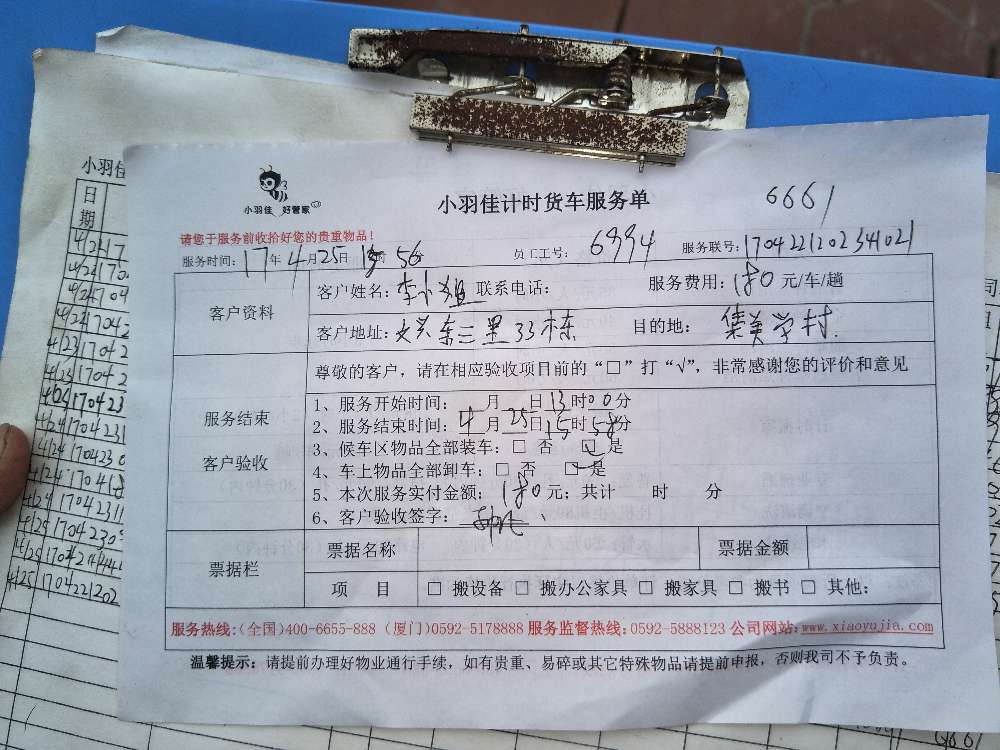 小羽佳 好管家
小羽佳计时货车服务单
6661
请您于服务前收拾好您的贵重物品！
服务时间：17年4月25日 时56分 员工工号：6994 服务联号：1704221202341021
客户资料
客户姓名：李小姐 联系电话： 服务费用：180元/车/趟
客户地址：文兴东三里33栋 目的地：集美学村.
尊敬的客户，请在相应验收项目前的“□”打“√”，非常感谢您的评价和意见
服务结束
客户验收
1、服务开始时间： 月 日13时00分
2、服务结束时间：4月25日15时58分
3、候车区物品全部装车：□ 否 ☑ 是
4、车上物品全部卸车：□ 否 ☑ 是
5、本次服务实付金额：180元；共计 时 分
6、客户验收签字：
票据栏
票据名称 票据金额
项 目 □ 搬设备 □ 搬办公家具 □ 搬家具 □ 搬书 □ 其他：
服务热线：（全国）400-6655-888（厦门）0592-5178888 服务监督热线：0592-5888123 公司网站：www.xiaoyujia.com
温馨提示：请提前办理好物业通行手续，如有贵重、易碎或其它特殊物品请提前申报，否则我司不予负责。
小羽佳
日期